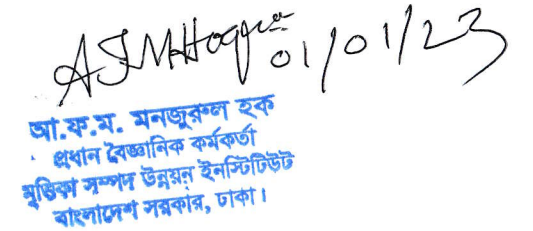 AJMHoque 01/01/23
আ.ফ.ম. মনজুরুল হক
প্রধান বৈজ্ঞানিক কর্মকর্তা
মৃত্তিকা সম্পদ উন্নয়ন ইনস্টিটিউট
বাংলাদেশ সরকার, ঢাকা।